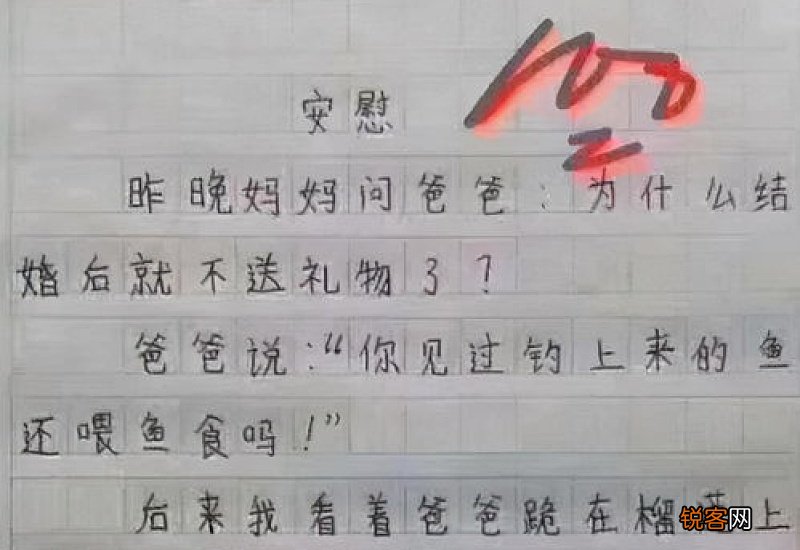 100
安慰
昨晚妈妈问爸爸:为什么结
婚后就不送礼物了?
爸爸说:“你见过钓上来的鱼
还喂鱼食吗!”
后来我看着爸爸跪在榴莲上
锐客网